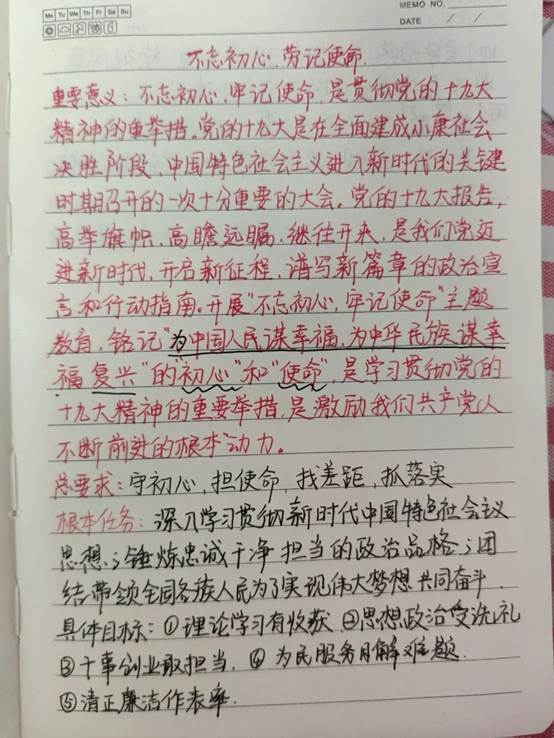 Mo Tu We Th Fr Sa Su
MEMO NO.
DATE / /
不忘初心,劳记使命
重要意义:不忘初心,牢记使命,是贯彻党的十九大
精神的重举措。党的十九大是在全面建成小康社会
决胜阶段,中国特色社会主义进入新时代的关键
时期召开的一次十分重要的大会。党的十九大报告,
高举旗帜,高瞻远瞩,继往开来,是我们党迈
进新时代,开启新征程,谱写新篇章的政治宣
言和行动指南。开展"不忘初心,牢记使命"主题
教育,铭记"为中国人民谋幸福,为中华民族谋幸
福复兴"的"初心"和"使命",是学习贯彻党的
十九大精神的重要举措,是激励我们共产党人
不断前进的根本动力。
总要求:守初心,担使命,找差距,抓落实
根本任务:深入学习贯彻新时代中国特色社会主义
思想;锤炼忠诚干净担当的政治品格;团
结带领全国各族人民为了实现伟大梦想共同奋斗.
具体目标:①理论学习有收获 ②思想政治受洗礼
③干事创业敢担当. ④为民服务解难题.
⑤清正廉洁作表率.